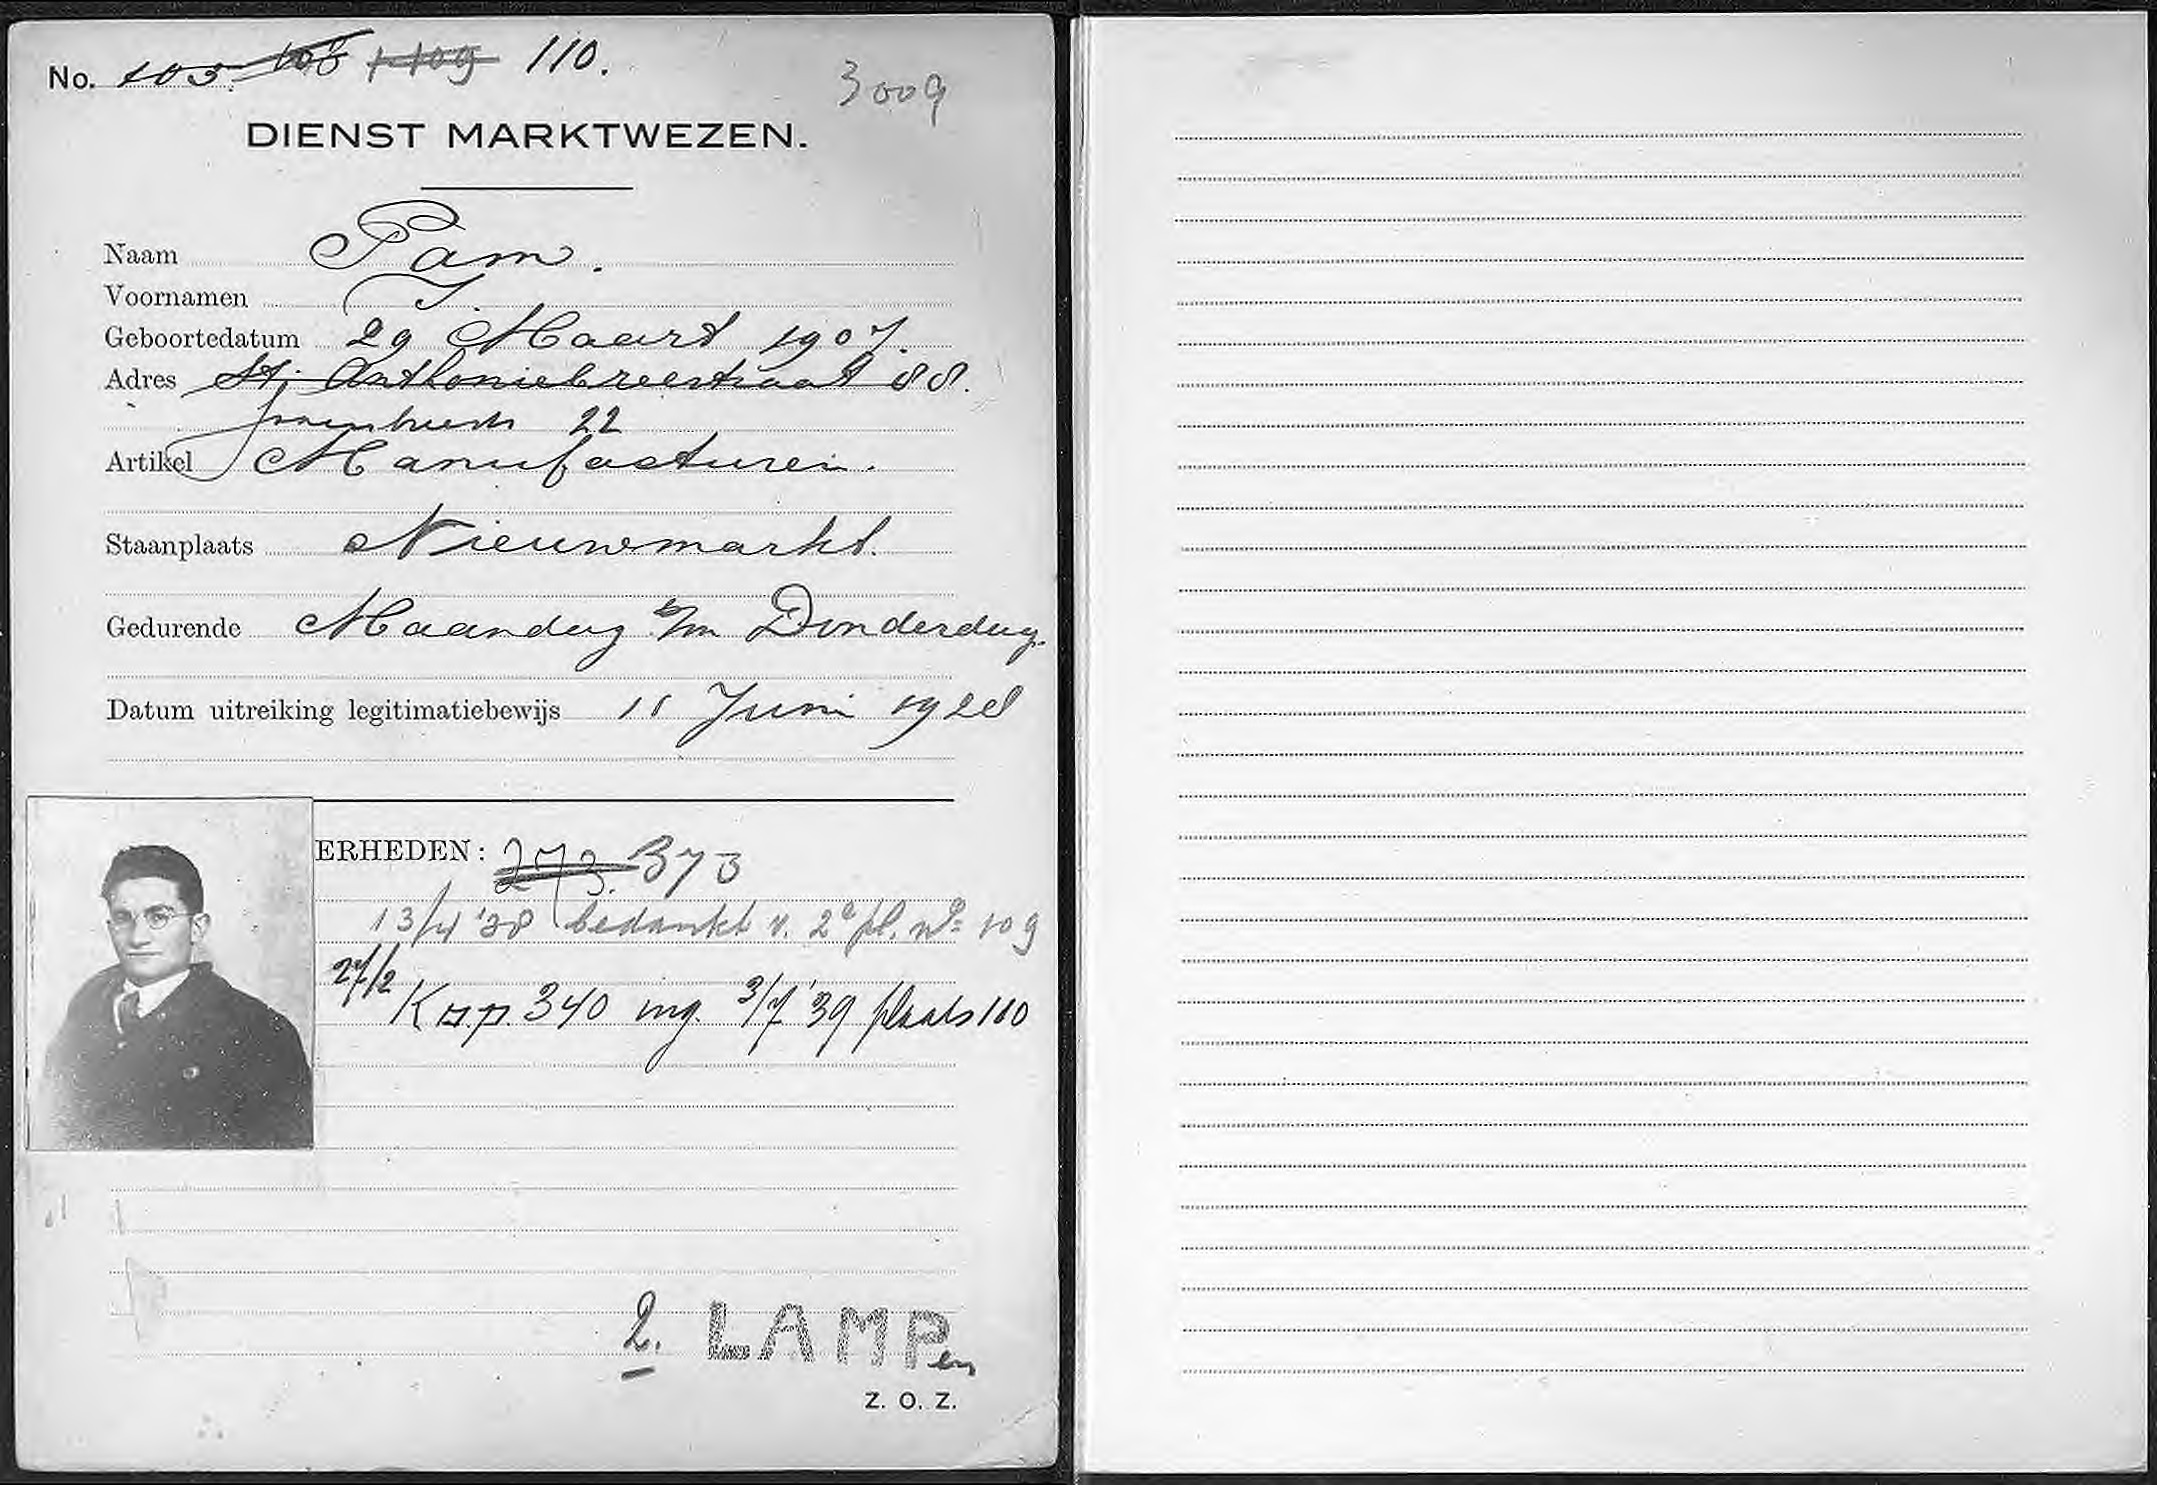 No. 105. 108 109 110.
3009
DIENST MARKTWEZEN.
Naam Pam.
Voornamen I.
Geboortedatum 29 Maart 1907.
Adres St. Anthoniebreestraat 88.
22
Artikel Manufacturen.
Staanplaats Nieuwmarkt.
Gedurende Maandag t/m Donderdag.
Datum uitreiking legitimatiebewijs 11 Juni 1928
ERHEDEN: 273. 373
13/4 '38 bedankt v. 2e pl. no 109
27/2 K.p. 340 ing. 3/7 '39 plaats 110
2. LAMPen
Z. O. Z.